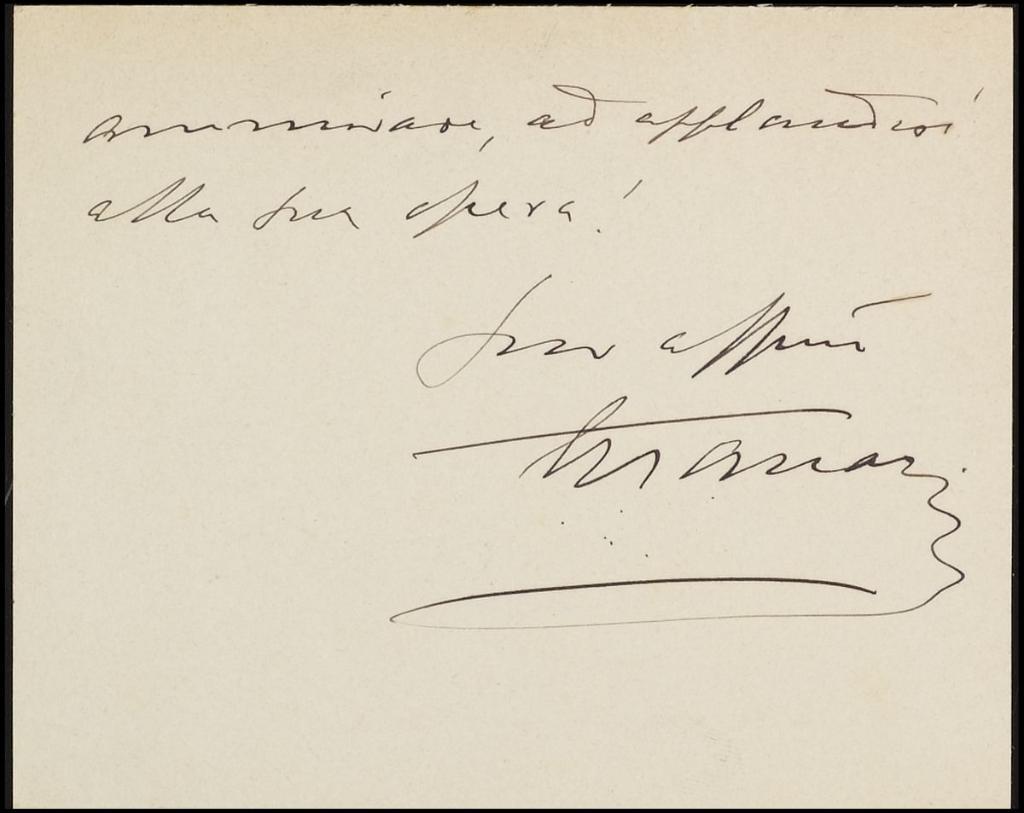 ammirare, ad applaudire
alla sua opera!
Suo affmo